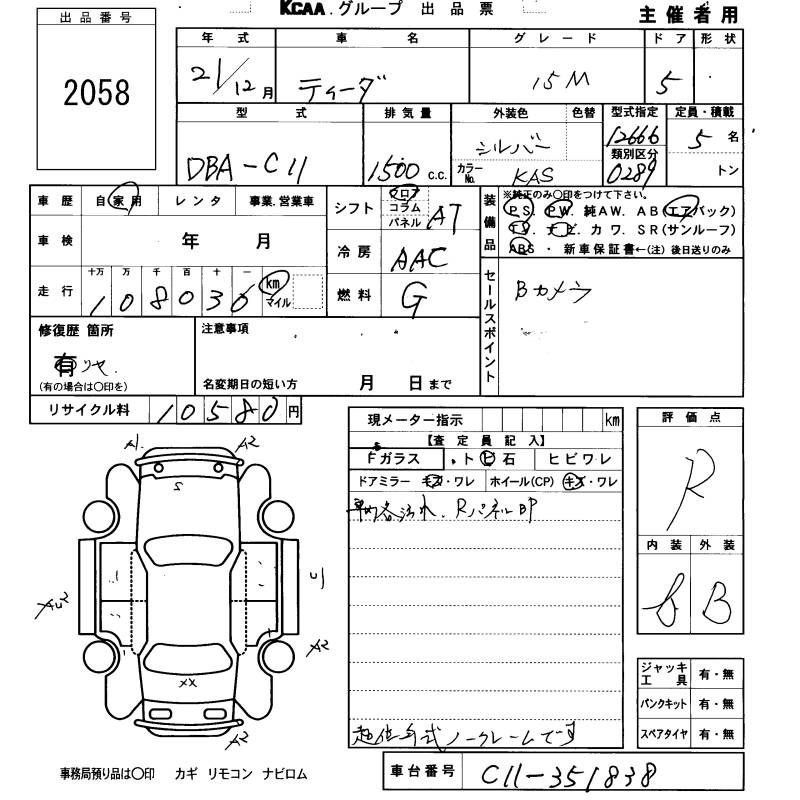 KCAA.グループ 出品票 主催者用
出品番号
2058
年式 車名 グレード ドア 形状
21/12月 ティーダ 15M 5
型式 排気量 外装色 色替 型式指定 定員・積載
DBA-C11 1500c.c. シルバー 12666 5名
カラーNo. KAS 類別区分 0289 トン
車歴 自家用 レンタ 事業.営業車
車検 年 月
走行 十万 万 千 百 十 一
108036 km マイル
シフト フロア コラム パネル AT
冷房 AAC
燃料 G
装備品 ※純正のみ○印をつけて下さい。
PS. PW. 純AW. AB(エアバック)
TV. ナビ. カワ. SR(サンルーフ)
ABS ・ 新車保証書←(注) 後日送りのみ
セールスポイント Bカメラ
修復歴 箇所
有
(有の場合は○印を)
注意事項
名変期日の短い方 月 日まで
リサイクル料 10580円
現メーター指示 km
【査定員記入】
Fガラス ・ト ヒ 石 ヒビワレ
ドアミラー キズ・ワレ ホイール(CP) キズ・ワレ
車内各汚れ. Rパネル凹
超低年式ノークレームです
評価点
R
内装 外装
B B
ジャッキ工具 有・無
パンクキット 有・無
スペアタイヤ 有・無
A1 A2
S
AU2 U
A2
XX
A2
事務局預り品は○印 カギ リモコン ナビロム
車台番号 C11-351838